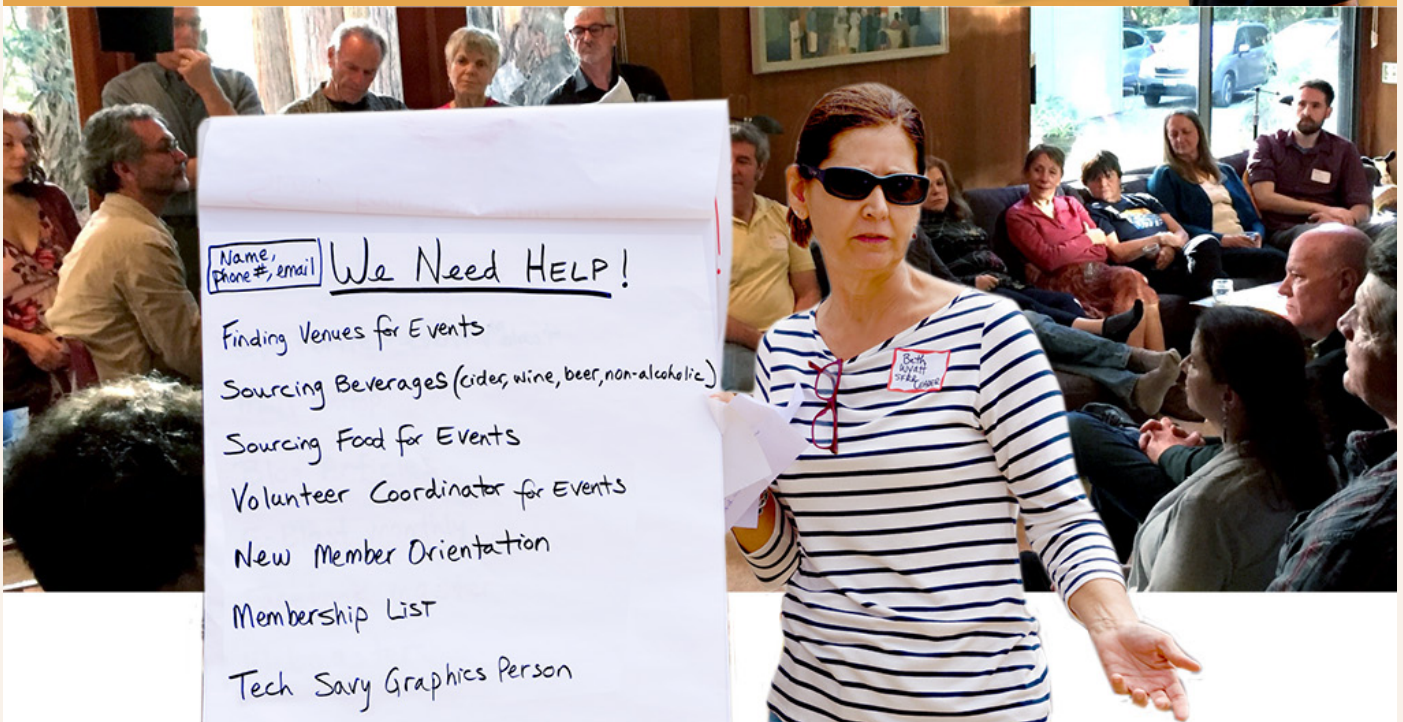 Name,
Phone #, email
We Need HELP!
Finding Venues for Events
Sourcing Beverages (cider, wine, beer, non-alcoholic)
Sourcing Food for Events
Volunteer Coordinator for Events
New Member Orientation
Membership List
Tech Savy Graphics Person
Beth
Wyatt